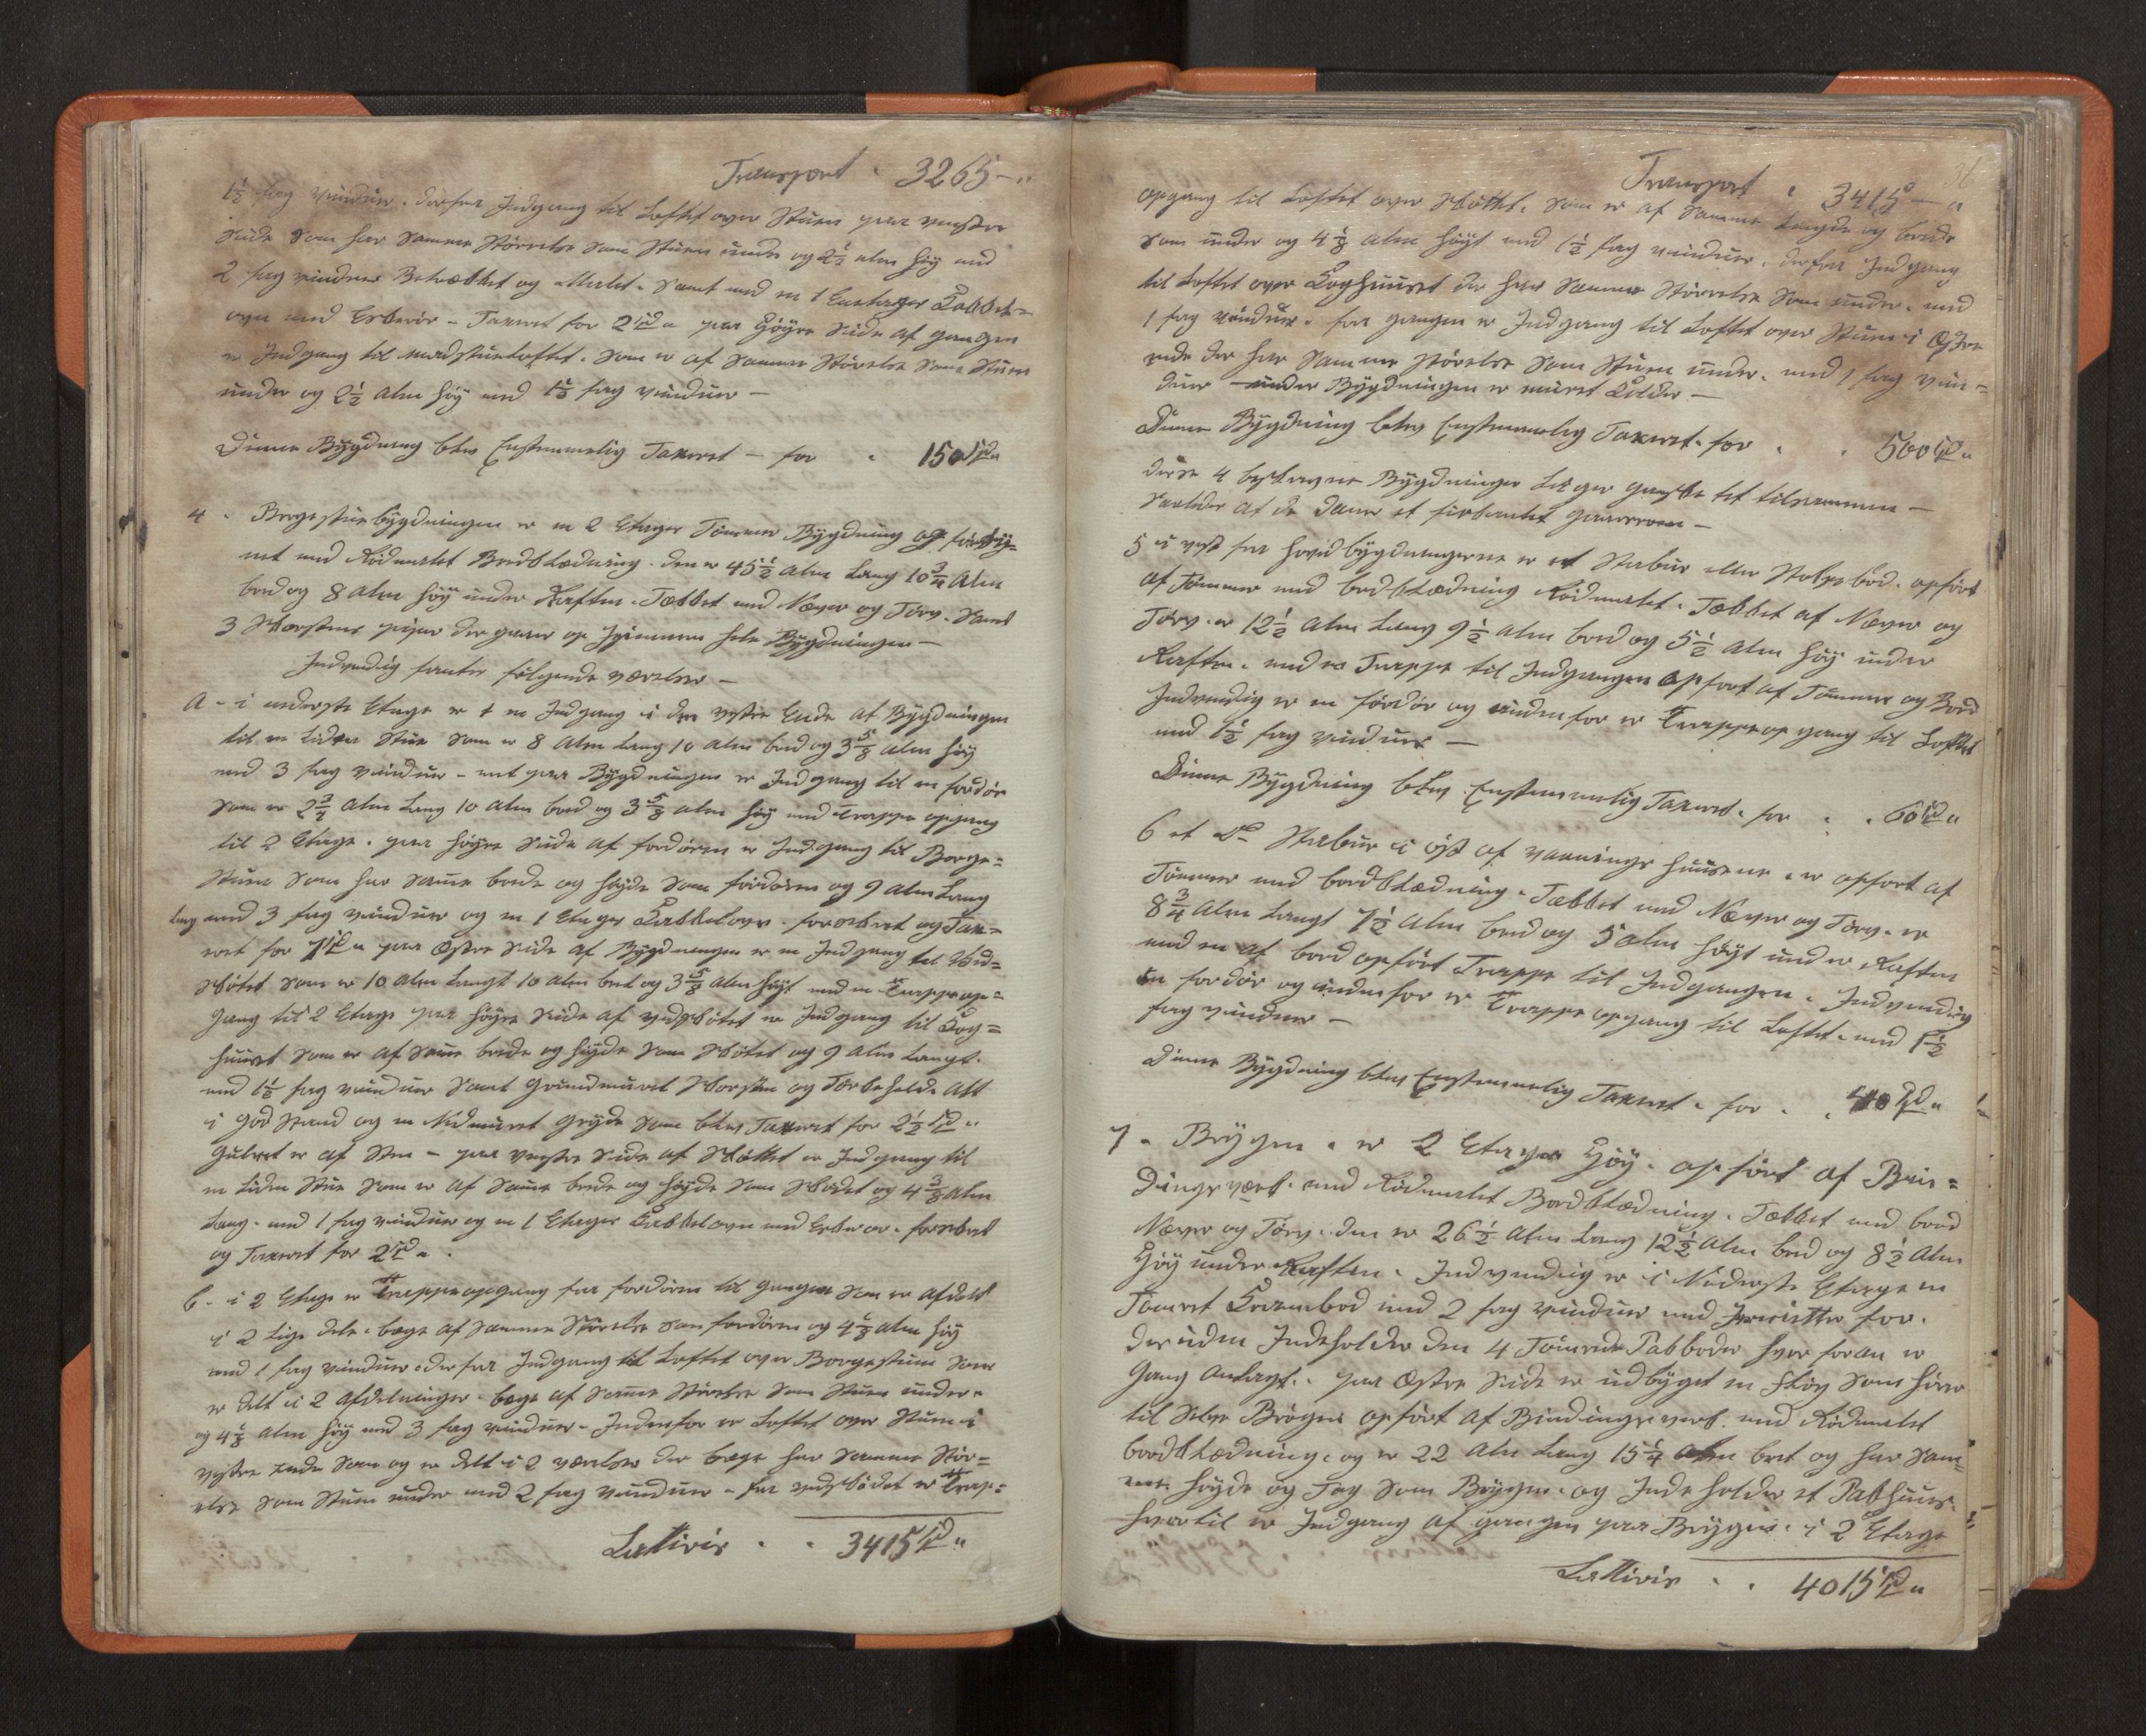 Transport " 3265 - "
1½ fag vinduer. derfra Indgang til Loftet over Stuen paa venstre
Side som har Samme Størrelse som Stuen under og 2½ alen høy med
2 fag vinduer Betrækket og Malet. Samt med en 1 Etages Kakkel-
ovn med Esberør - Taxeret for 2 rd " paa Høyre Side af gangen
er Indgang til Madstueloftet. som er af Samme Størrelse som Stuen
under og 2½ alen høy med 1½ fag vinduer -
Denne Bygdning blev Enstemmelig Taxeret - for " 150 rd "
4 - Borgestuebygdningen er en 2 Etages Tømmer Bygdning og forsy=
net med Rødmalet Bordklædning. den er 45½ Alen Lang 10¾ Alen
bred og 8 Alen høy under Raften. Tækket med Næver og Törv. Samt
3 Skorstens piper der gaaer op Igiennem hele Bygdningen -
Indvendig fantes følgende værelser -
A - i underste Etage er en Indgang i den vestre Ende af Bygdningen
til en liden Stue som er 8 Alen Lang 10 Alen bred og 3⅝ Alen høy
med 3 fag vinduer - mit paa Bygdningen er Indgang til en fordör
som er 2¾ Alen Lang 10 Alen bred og 3⅝ alen høy med Trappe opgang
til 2 Etage. paa høyre Side af fordören er Indgang til Borge=
Stuen som har Same brede og høyde som fordören og 9 Alen Lang
med 3 fag vinduer og en 1 Etages Kakkelovn. forarbet og Tax=
eret for 7 rd " paa Østre Side af Bygdningen er en Indgang til Vid=
skötet som er 10 Alen Langt 10 Alen bret og 3⅝ Alen høyt med en Trappeop=
gang til 2 Etage paa høyre Side af vidskötet er Indgang til Kog=
huuset som er af Same brede og høyde som Skötet og 9 Alen Langt.
med 1½ fag vinduer Samt Grundmuret Skorsten og Tørbeholde Alt
i god Stand og en Nidmuret Gryde som blev Taxeret for 2½ rd "
Gulvet er af Sten - paa venstre Side af Skötet er Indgang til
en liden Stue som er af Same brede og høyde som Skødet og 4⅝ Alen
Lang. med 1 fag vinduer og en 1 Etages Kakkelovn med Esberør. forarbet
og Taxeret for 2 rd " .
b - i 2 Etage er Trappeopgang fra fordören til gangen som er afdelt
i 2 Lige dele. bege af Samme Størrelse som fordören og 4⅛ alen høy
med 1 fag vinduer. derfra Indgang til Loftet over Borgestuen som
er delt i 2 Afdelninger. bege af Same Størrelse som Stuen under.
og 4⅛ Alen høy med 3 fag vinduer - Indenfor er Loftet over Stuen i
vestre Ende som og er delt i 2 værelser der bege har Samme Stør=
relse som Stuen under med 2 fag vinduer - fra vidsködet er Trap=
Lattiris " " 3415 rd "
Transport " 3415 - "
opgang til Loftet over Skötet. som er af Samme Længde og brede
som under og 4⅛ Alen høyt med 1½ fag vinduer. derfra Indgang
til Loftet over Koghuuset der har Samme Størrelse som under. med
1 fag vinduer. fra gangen er Indgang til Loftet over Stuen i Østre
ende der har Samme Størelse som Stuen under. med 1 fag vin=
duer under Bygdningen er muret Kelder -
Denne Bygdning blev Enstemmelig Taxeret. for " " 500 rd "
Disse 4 beskrevne Bygdninger Ligger ganske tet tilsammen -
Saaledes at de daner et firkantet gaarsrom -
5 i vest fra hovidbygdningerne er et Stabur eller Stolpebod. opført
af Tømmer med bordklædning Rödmalet. Tækket af Næver og
Törv. er 12½ Alen Lang 9½ Alen bred og 5½ Alen høy under
Raften. med en Trappe til Indgangen opfört af Tømmer og Bord
Indvendig er en fördör og indenfor er Trappeopgang til Loftet
med 1½ fag vinduer -
Denne Bygdning blev Enstemmelig Taxeret. for " " 60 rd "
6 et Do Stabur i øst af vaanings huusene. er opfört af
Tømmer med bordklædning. Tækket med Næver og Törv. er
8¾ Alen Langt 7½ Alen bred og 5 alen høyt under Raften
med en af bord opfört Trappe til Indgangen. Indvendig
en fordör og indenfor er Trappeopgang til Loftet. med 1½
fag vinduer -
Denne Bygdning blev Enstemmelig Taxeret. for " " 40 rd "
7 - Brygen. er 2 Etages Høy. opfört af Bin=
dingsværk. med Rödmalet Bordklædning. Tækket med bord
Næver og Törv. den er 26½ Alen Lang 12½ Alen bred og 8½ Alen
Høy under Raften. Indvendig er i Nederste Etage en
Tømret Krambod med 2 fag vinduer med Jernsitter for.
desuden Indeholder den 4 Tömrede Pakboder hver foran er
Gang anlagt. paa Østre Side er udbyget en Skøy som hører
til Selve Brögen opfört af Bindingsverk. med Rödmalet
bordklædning. og er 22 Alen Lang 15¼ Alen bret og har Sam=
me Høyde og Tag som Brygen. og Indeholder et Pakhuus.
hvortil er Indgang af gangen paa Brygen. i 2 Etage
Lattiris " " 4015 rd "